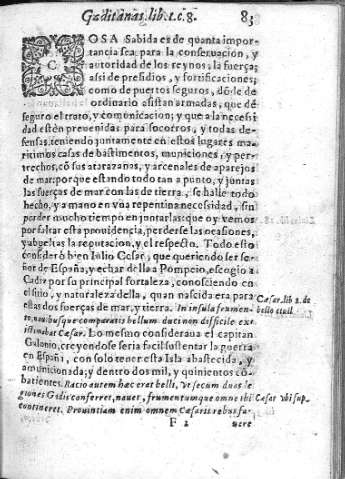 Gaditanas. lib. 1. c. 8. 83
COSA Sabida es de quanta impor-
tancia sea para la conseruacion, y
autoridad de los reynos, la fuerça;
assi de presidios, y fortificaciones;
como de puertos seguros, dõde de
ordinario assistan armadas, que dẽ
seguro el trato, y comunicacion; y que a la necesi
dad estèn preuenidas para socorros, y todas de-
fensas, teniendo juntamente en estos lugares ma-
ritimos casas de bastimentos, municiones, y per-
trechos, cõ sus atarazanas, y arcenales de aparejos
de mar: porque estando todo tan a punto, y juntas
las fuerças de mar con las de tierra, se halle todo
hecho, y a mano en vna repentina necesidad, sin
perder mucho tiempo en juntarlas: que oy vemos
por faltar esta prouidencia, perderse las ocasiones,
y a bueltas la reputacion, y el respecto. Todo esto
considerò bien Iulio Cesar, que queriendo ser se-
ñor de España, y echar della a Pompeio, escogio a
Cadiz por su principal fortaleza, conosciendo en
el sitio, y naturaleza della, quan nascida era para
estas dos fuerças de mar, y tierra. In insula frumen-
to, nauibusque comparatis bellum duci non difficile exi-
stimabat Cæsar. Lo mesmo consideraua el capitan
Galonio, creyendo le seria facil sustentar la guerra
en España, con solo tener esta Isla abastecida, y
amunicionada; y dentro dos mil, y quinientos cõ-
batientes. Ratio autem hæc erat belli, vt secum duas le
giones Gadis conferret, naues, frumentumque omne ibi
contineret. Prouintiam enim omnem Cæsaris rebus fa-
F 2 uere
Cæsar. lib 2. de
bello ciuil
Cæsar vbi sup.